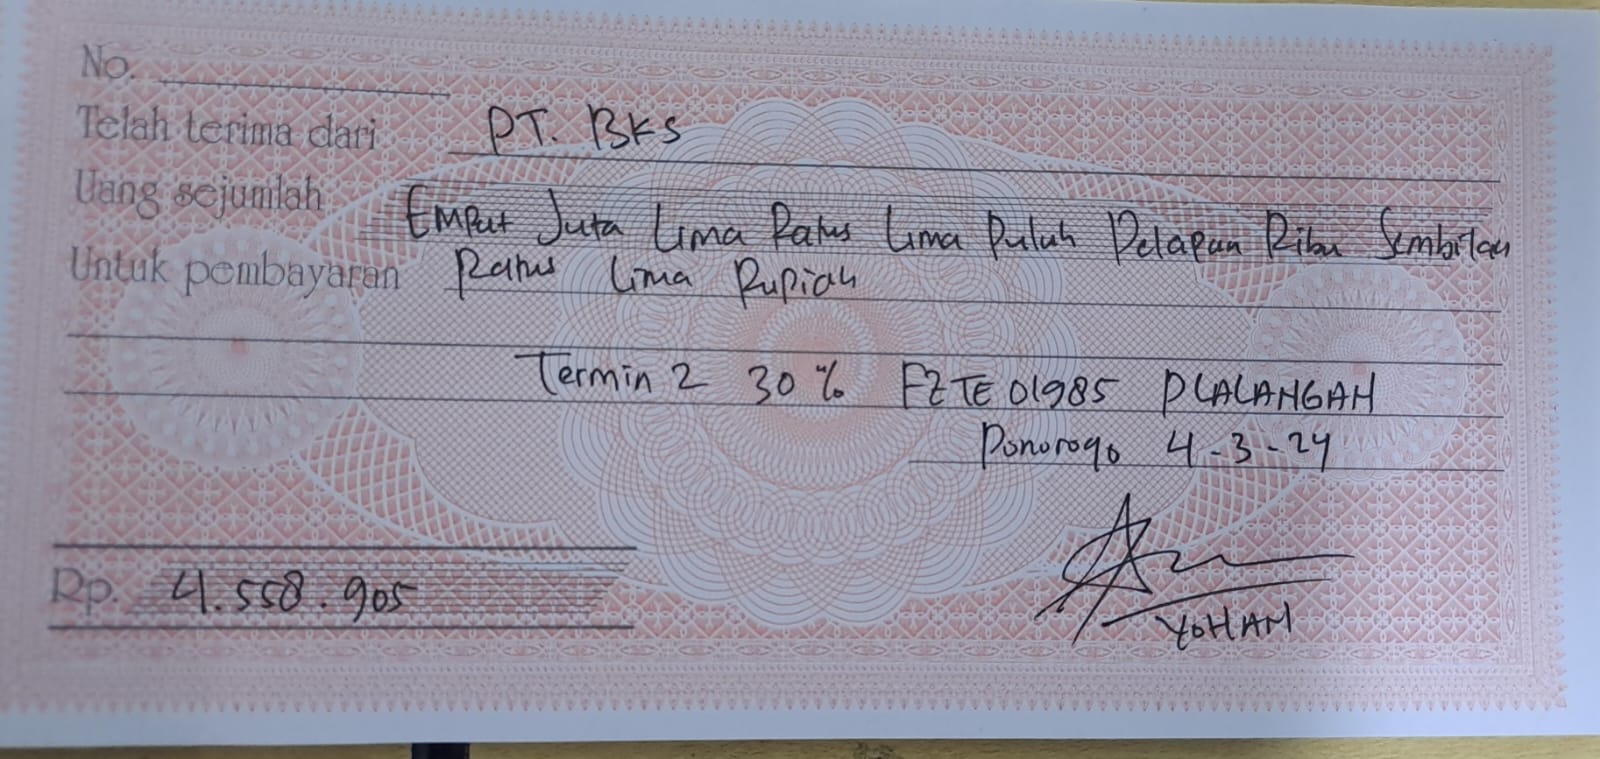 No.
Telah terima dari PT. BKS
Uang sejumlah Empat Juta Lima Ratus Lima Puluh Delapan Ribu Sembilan
Untuk pembayaran Ratus Lima Rupiah
Termin 2 30 % FZTE01985 PLALANGAN
Ponorogo 4-3-24
Rp. 4.558.905
YOHAN